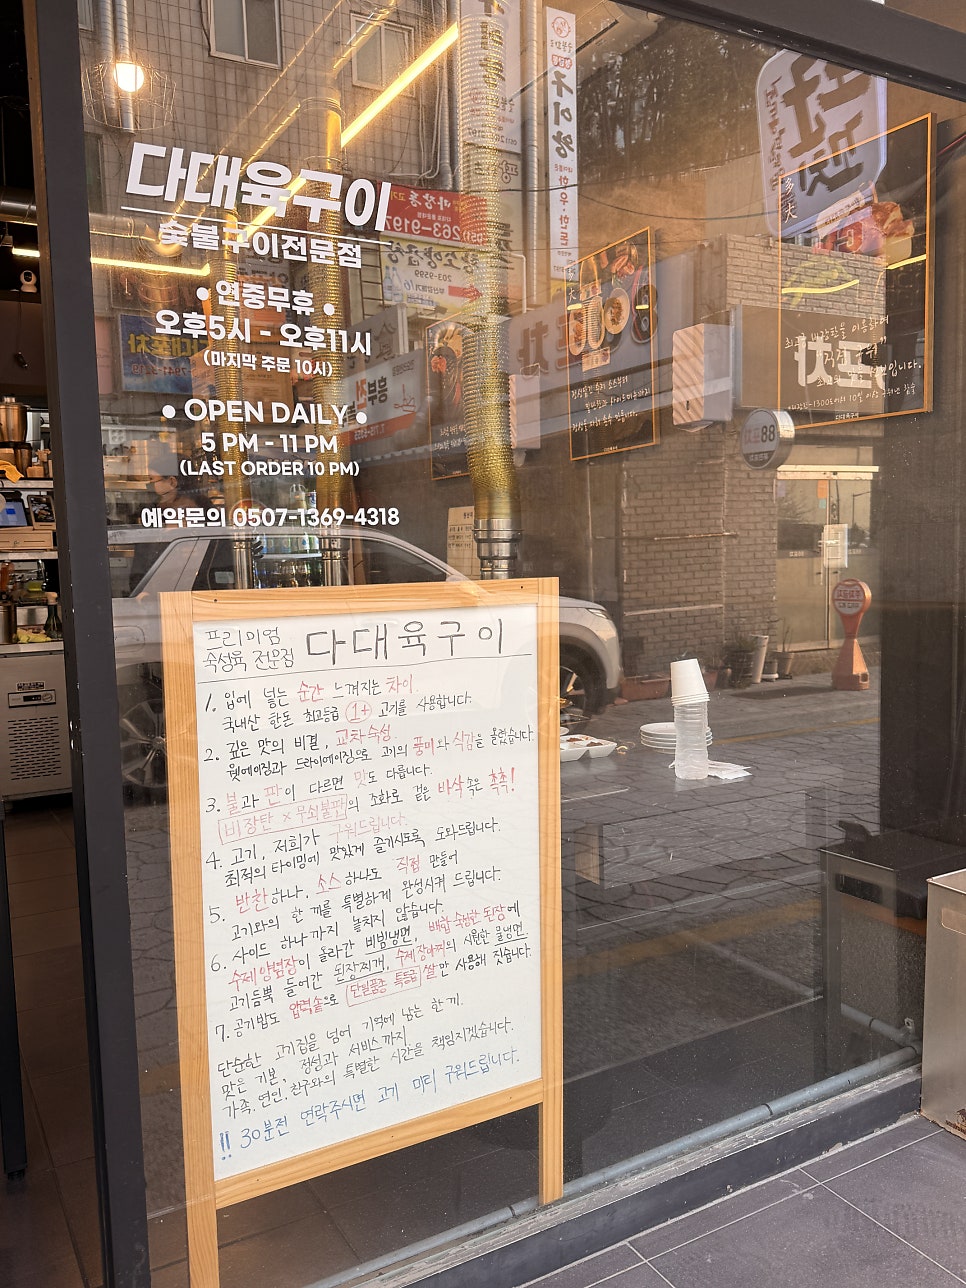 다대육구이
숯불구이전문점
• 연중무휴 •
오후5시 - 오후11시
(마지막 주문 10시)
• OPEN DAILY •
5 PM - 11 PM
(LAST ORDER 10 PM)
예약문의 0507-1369-4318
프리미엄
숙성육 전문점
다대육구이
1. 입에 넣는 순간 느껴지는 차이.
국내산 한돈 최고등급 1+ 고기를 사용합니다.
2. 깊은 맛의 비결, 교차숙성.
웻에이징과 드라이에이징으로 고기의 풍미와 식감을 올렸습니다.
3. 불과 판이 다르면 맛도 다릅니다.
비장탄 × 무쇠불판의 조화로 겉은 바삭 속은 촉촉!
4. 고기, 저희가 구워드립니다.
최적의 타이밍에 맛있게 즐기시도록 도와드립니다.
5. 반찬하나, 소스하나도 직접 만들어
고기와의 한 끼를 특별하게 완성시켜 드립니다.
6. 사이드 하나까지 놓치지 않습니다.
수제양념장이 올라간 비빔냉면, 배합숙성한 된장에
고기듬뿍 들어간 된장찌개, 수제장아찌의 시원한 물냉면.
7. 공기밥도 압력솥으로 단일품종 특등급 쌀만 사용해 짓습니다.
단순한 고기집을 넘어 기억에 남는 한끼.
맛은 기본, 정성과 서비스까지.
가족, 연인, 친구와의 특별한 시간을 책임지겠습니다.
!! 30분전 연락주시면 고기 미리 구워드립니다.
구이랑
한우·한돈
263-9197
203-9599
88
多大